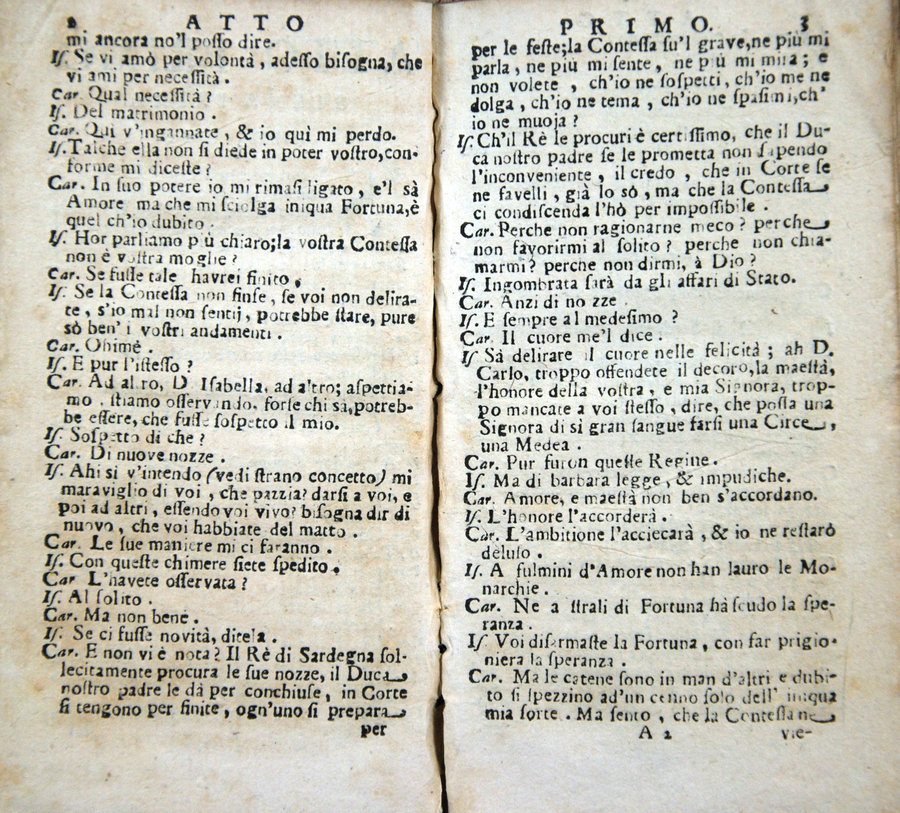 2 ATTO
mi ancora no'l posso dire.
Is. Se vi amò per volontà, adesso bisogna, che
vi ami per necessità.
Car. Qual necessità?
Is. Del matrimonio.
Car. Qui v'ingannate, & io qui mi perdo.
Is. Talche ella non si diede in poter vostro, con-
forme mi diceste?
Car. In suo potere io mi rimasi ligato, e'l sà
Amore ma che mi sciolga iniqua Fortuna, è
quel ch'io dubito.
Is. Hor parliamo più chiaro; la vostra Contessa
non è vostra moglie?
Car. Se fusse tale havrei finito.
Is. Se la Contessa non finse, se voi non delira-
te, s'io mal non sentij, potrebbe stare, pure
sò ben' i vostri andamenti.
Car. Ohimè.
Is. E pur l'istesso?
Car. Ad altro, D. Isabella, ad altro; aspettia-
mo, stiamo osservando, forse chi sà, potreb-
be essere, che fusse sospetto il mio.
Is. Sospetto di che?
Car. Di nuove nozze.
Is. Ahi si v'intendo (vedi strano concetto) mi
maraviglio di voi, che pazzia? darsi a voi, e
poi ad altri, essendo voi vivo? bisogna dir di
nuovo, che voi habbiate del matto.
Car. Le sue maniere mi ci faranno.
Is. Con queste chimere siete spedito.
Car L'havete osservata?
Is. Al solito.
Car. Ma non bene.
Is. Se ci fusse novità, ditela.
Car. E non vi è nota? Il Rè di Sardegna sol-
lecitamente procura le sue nozze, il Duca
nostro padre le dà per conchiuse, in Corte
si tengono per finite, ogn'uno si prepara
per
PRIMO. 3
per le feste; la Contessa su'l grave, ne più mi
parla, ne più mi sente, ne più mi mira; e
non volete, ch'io ne sospetti, ch'io me ne
dolga, ch'io ne tema, ch'io ne spasimi, ch'
io ne muoja?
Is. Ch'il Rè le procuri è certissimo, che il Du-
ca nostro padre se le prometta non sapendo
l'inconveniente, il credo, che in Corte se
ne favelli, già lo sò, ma che la Contessa
ci condiscenda l'hò per impossibile.
Car. Perche non ragionarne meco? perche
non favorirmi al solito? perche non chia-
marmi? perche non dirmi, à Dio?
Is. Ingombrata sarà da gli affari di Stato.
Car. Anzi di nozze.
Is. E sempre al medesimo?
Car. Il cuore me'l dice.
Is Sà delirare il cuore nelle felicità; ah D.
Carlo, troppo offendete il decoro, la maestà,
l'honore della vostra, e mia Signora, trop-
po mancate a voi stesso, dire, che possa una
Signora di si gran sangue farsi una Circe,
una Medea.
Car. Pur furon queste Regine.
Is. Ma di barbara legge, & impudiche.
Car. Amore, e maestà non ben s'accordano.
Is. L'honore l'accorderà.
Car. L'ambitione l'acciecarà, & io ne restarò
deluso.
Is. A fulmini d'Amore non han lauro le Mo-
narchie.
Car. Ne a strali di Fortuna hà scudo la spe-
ranza.
Is. Voi disarmaste la Fortuna, con far prigio-
niera la speranza.
Car. Ma le catene sono in man d'altri e dubi-
to si spezzino ad'un cenno solo dell' iniqua
mia sorte. Ma sento, che la Contessa ne
A 2 vie-